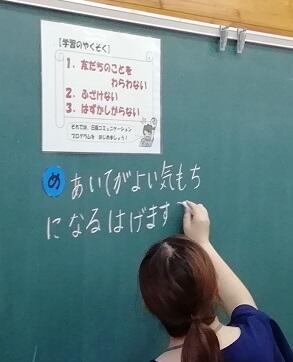 【学習のやくそく】
1. 友だちのことを
わらわない
2. ふざけない
3. はずかしがらない
それでは、日直コミュニケーション
プログラムを はじめましょう!
め あいてがよい気もち
になるはげます